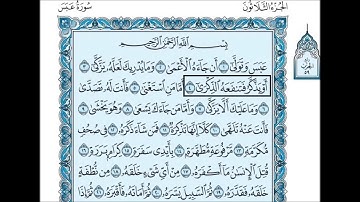 الجزء الثلاثون
سورة عبس
بِسْمِ اللَّهِ الرَّحْمَٰنِ الرَّحِيمِ
عَبَسَ وَتَوَلَّىٰ ١ أَن جَاءَهُ الْأَعْمَىٰ ٢ وَمَا يُدْرِيكَ لَعَلَّهُ يَزَّكَّىٰ ٣
أَوْ يَذَّكَّرُ فَتَنفَعَهُ الذِّكْرَىٰ ٤ أَمَّا مَنِ اسْتَغْنَىٰ ٥ فَأَنتَ لَهُ تَصَدَّىٰ
٦ وَمَا عَلَيْكَ أَلَّا يَزَّكَّىٰ ٧ وَأَمَّا مَن جَاءَكَ يَسْعَىٰ ٨ وَهُوَ يَخْشَىٰ
٩ فَأَنتَ عَنْهُ تَلَهَّىٰ ١٠ كَلَّا إِنَّهَا تَذْكِرَةٌ ١١ فَمَن شَاءَ ذَكَرَهُ ١٢ فِي صُحُفٍ
مُّكَرَّمَةٍ ١٣ مَّرْفُوعَةٍ مُّطَهَّرَةٍ ١٤ بِأَيْدِي سَفَرَةٍ ١٥ كِرَامٍ بَرَرَةٍ ١٦
قُتِلَ الْإِنسَانُ مَا أَكْفَرَهُ ١٧ مِنْ أَيِّ شَيْءٍ خَلَقَهُ ١٨ مِن نُّطْفَةٍ
خَلَقَهُ فَقَدَّرَهُ ١٩ ثُمَّ السَّبِيلَ يَسَّرَهُ ٢٠ ثُمَّ أَمَاتَهُ فَأَقْبَرَهُ ٢١ ثُمَّ إِذَا
الحزب
٥٩